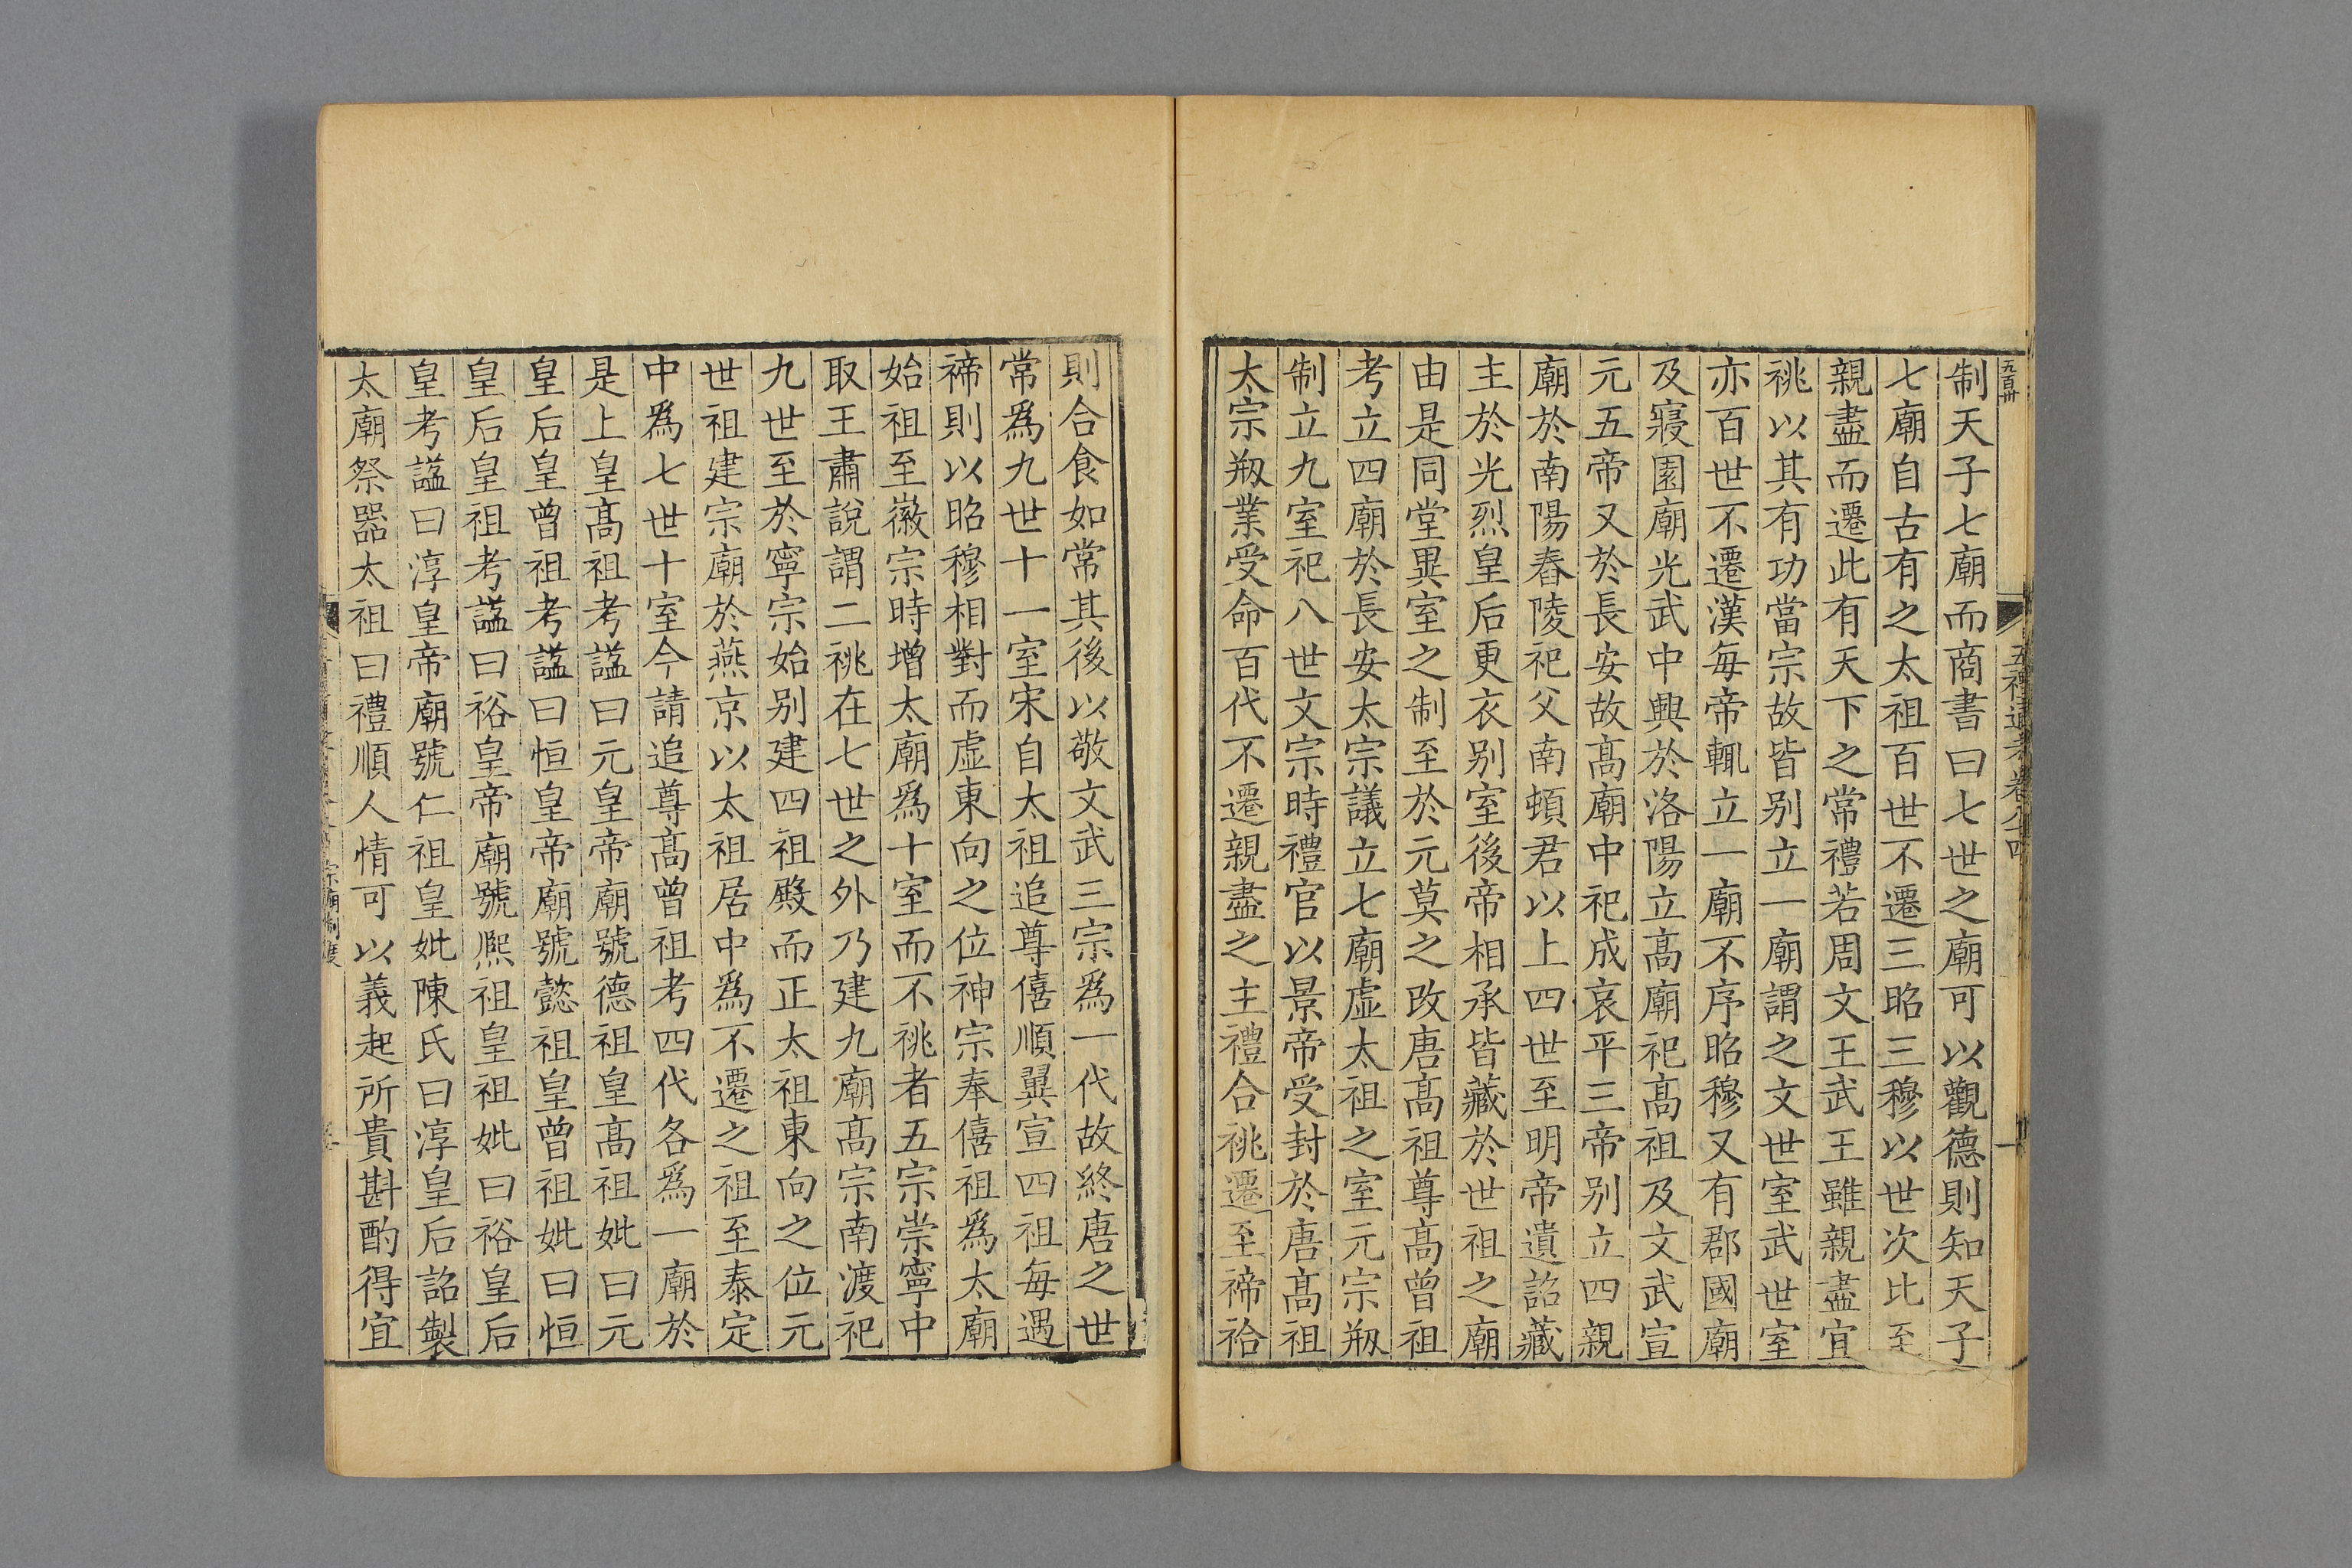 五百卅
五禮通考卷八十四
一
制天子七廟而商書曰七世之廟可以觀德則知天子
七廟自古有之太祖百世不遷三昭三穆以世次比至
親盡而遷此有天下之常禮若周文王武王雖親盡宜
祧以其有功當宗故皆别立一廟謂之文世室武世室
亦百世不遷漢每帝輒立一廟不序昭穆又有郡國廟
及寢園廟光武中興於洛陽立髙廟祀髙祖及文武宣
元五帝又於長安故髙廟中祀成哀平三帝别立四親
廟於南陽舂陵祀父南頓君以上四世至明帝遺詔藏
主於光烈皇后更衣别室後帝相承皆藏於世祖之廟
由是同堂異室之制至於元莫之改唐髙祖尊髙曾祖
考立四廟於長安太宗議立七廟虛太祖之室元宗剏
制立九室祀八世文宗時禮官以景帝受封於唐髙祖
太宗剏業受命百代不遷親盡之主禮合祧遷至禘祫
則合食如常其後以敬文武三宗爲一代故終唐之世
常爲九世十一室宋自太祖追尊僖順翼宣四祖每遇
禘則以昭穆相對而虛東向之位神宗奉僖祖爲太廟
始祖至徽宗時增太廟爲十室而不祧者五宗崇寧中
取王肅說謂二祧在七世之外乃建九廟髙宗南渡祀
九世至於寧宗始别建四祖殿而正太祖東向之位元
世祖建宗廟於燕京以太祖居中爲不遷之祖至泰定
中爲七世十室今請追尊髙曾祖考四代各爲一廟於
是上皇髙祖考謚曰元皇帝廟號德祖皇髙祖妣曰元
皇后皇曾祖考謚曰恒皇帝廟號懿祖皇曾祖妣曰恒
皇后皇祖考謚曰裕皇帝廟號熈祖皇祖妣曰裕皇后
皇考謚曰淳皇帝廟號仁祖皇妣陳氏曰淳皇后詔製
太廟祭器太祖曰禮順人情可以義起所貴斟酌得宜
宗廟制度